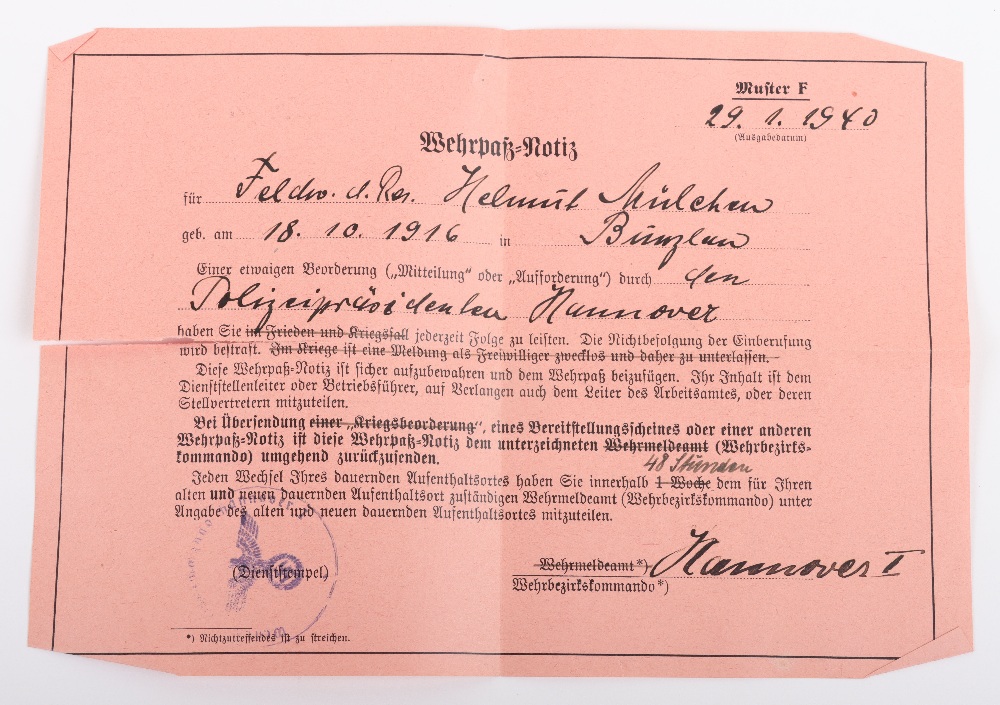 Muster F
29. 1. 1940
(Ausgabedatum)
Wehrpaß-Notiz
für Feldw. d. Res. Helmut Mülchen
geb. am 18. 10. 1916 in Bunzlau
Einer etwaigen Beorderung („Mitteilung“ oder „Aufforderung“) durch den
Polizeipräsidenten Hannover
haben Sie im Frieden und Kriegsfall jederzeit Folge zu leisten. Die Nichtbefolgung der Einberufung
wird bestraft. Im Kriege ist eine Meldung als Freiwilliger zwecklos und daher zu unterlassen.
Diese Wehrpaß-Notiz ist sicher aufzubewahren und dem Wehrpaß beizufügen. Ihr Inhalt ist dem
Dienststellenleiter oder Betriebsführer, auf Verlangen auch dem Leiter des Arbeitsamtes, oder deren
Stellvertretern mitzuteilen.
Bei Übersendung einer „Kriegsbeorderung“, eines Bereitstellungsscheines oder einer anderen
Wehrpaß-Notiz ist diese Wehrpaß-Notiz dem unterzeichneten Wehrmeldeamt (Wehrbezirks-
kommando) umgehend zurückzusenden.
48 Stunden
Jeden Wechsel Ihres dauernden Aufenthaltsortes haben Sie innerhalb 1 Woche dem für Ihren
alten und neuen dauernden Aufenthaltsort zuständigen Wehrmeldeamt (Wehrbezirkskommando) unter
Angabe des alten und neuen dauernden Aufenthaltsortes mitzuteilen.
(Dienststempel)
Wehrmeldeamt*) Hannover I
Wehrbezirkskommando*)
*) Nichtzutreffendes ist zu streichen.